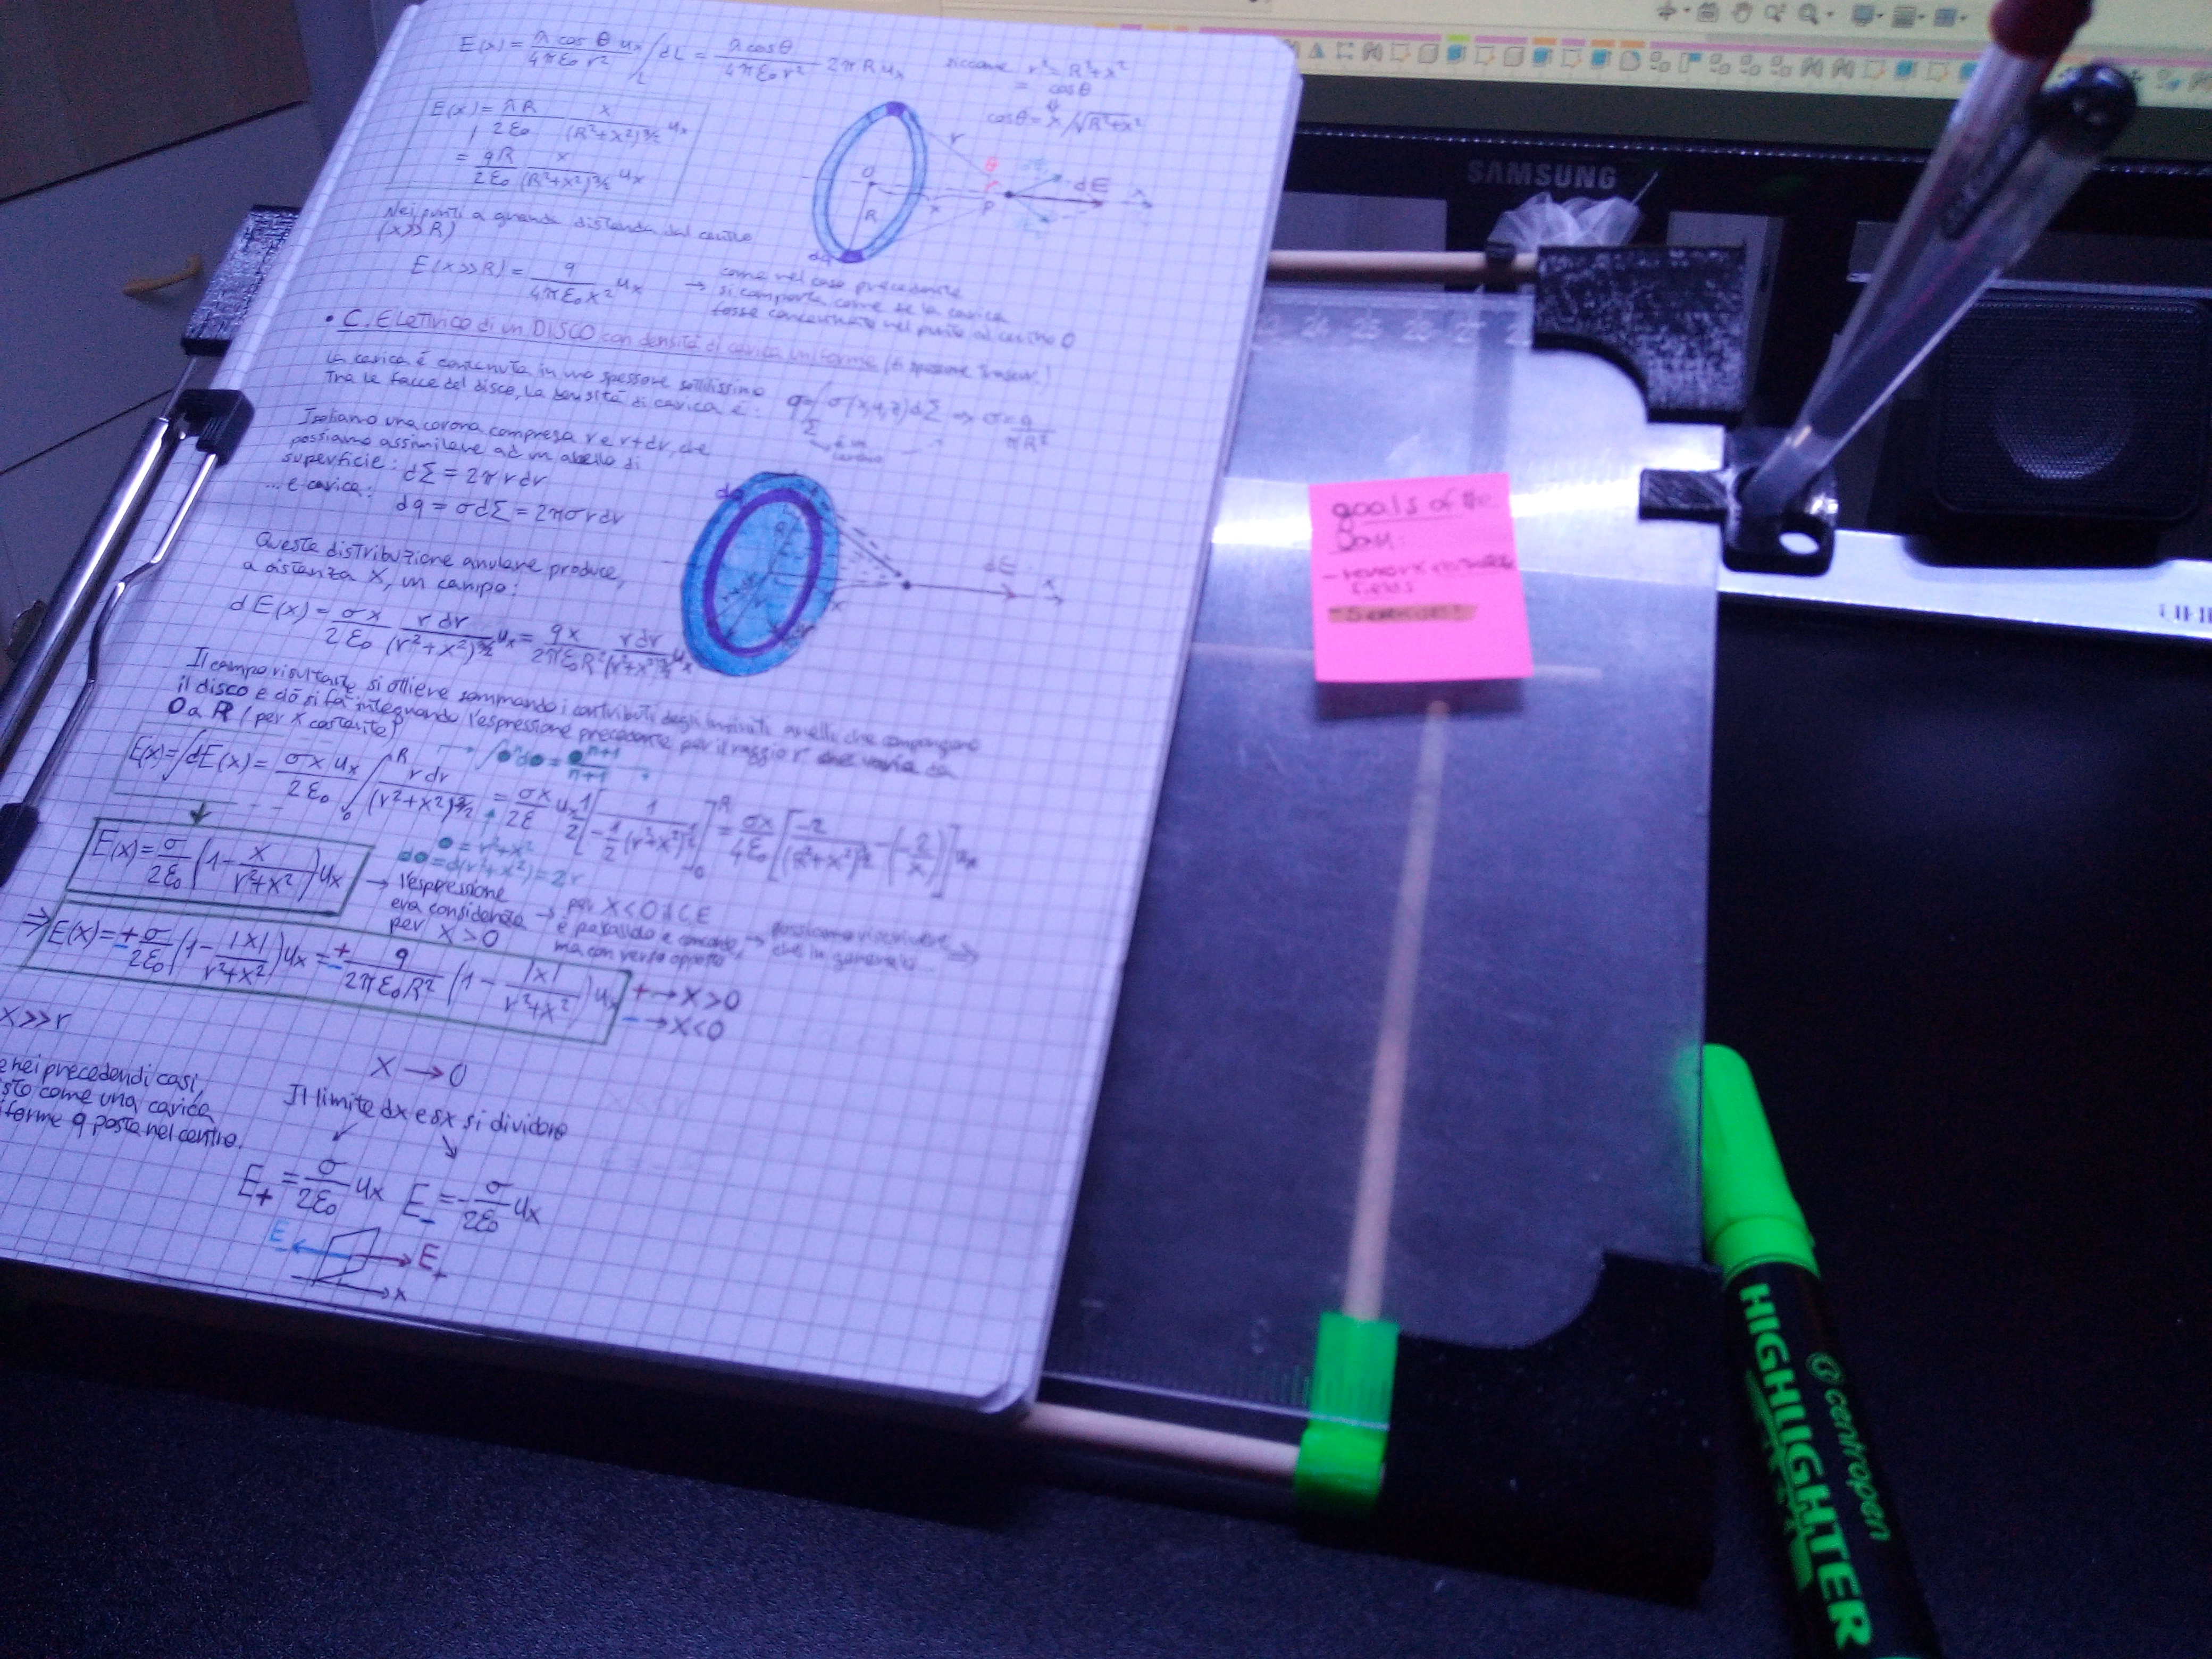 E(x) = λ cos θ / 4πε₀ r² uₓ ∫_L dL = λ cosθ / 4πε₀ r² 2πR uₓ siccome r² = R² + x²
= cosθ
cosθ = x/√R²+x²
E(x) = λR / 2ε₀ x / (R²+x²)^3/2 uₓ
= qR / 2ε₀ x / (R²+x²)^3/2 uₓ
r
θ
O
R
x
P
dE
x
dq
Nei punti a grande distanza dal centro
(x>>R)
E(x>>R) = q / 4πε₀x² uₓ → come nel caso precedente
si comporta come se la carica
fosse concentrata nel punto al centro O
• C. Elettrico di un DISCO con densità di carica uniforme
La carica è contenuta in uno spessore sottilissimo
tra le facce del disco, la densità di carica è: q = ∫_Σ σ(x,y,z)dΣ ⇒ σ = q / πR²
Isoliamo una corona compresa r e r+dr, che
possiamo assimilare ad un anello di
superficie: dΣ = 2πrdr
... e carica:
dq = σdΣ = 2πσrdr
dq
R
x
dE
x
Questa distribuzione anulare produce,
a distanza x, un campo:
dE(x) = σx / 2ε₀ rdr / (r²+x²)^3/2 uₓ = qx / 2πε₀R² rdr / (r²+x²)^3/2 uₓ
Il campo risultante si ottiene sommando i contributi degli infiniti anelli che compongono
il disco e ciò si fa integrando l'espressione precedente per il raggio r che varia da
0 a R (per x costante)
E(x) = ∫dE(x) = σx uₓ / 2ε₀ ∫₀^R rdr / (r²+x²)^3/2 = σx / 2ε uₓ 1/2 [1 / -1/2 (r²+x²)^1/2]₀^R = σx / 4ε₀ [-2 / (R²+x²)^1/2 - (-2/x)] uₓ
→ ∫●ⁿd● = ●ⁿ⁺¹ / n+1
● = r²+x²
d● = d(r²+x²) = 2r
E(x) = σ / 2ε₀ (1 - x / r²+x²) uₓ
→ l'espressione
era considerata
per x>0
→ per x<0 il C.E
è parallelo e concorde
ma con verso opposto
→ possiamo riscrivere
che in generale...
⇒ E(x) = ± σ / 2ε₀ (1 - |x| / r²+x²) uₓ = ± q / 2πε₀R² (1 - |x| / r²+x²) uₓ
+ → x>0
- → x<0
x>>r
e nei precedendi casi,
sto come una carica
forme q posta nel centro.
x → 0
Il limite dx e sx si dividono
E₊ = σ / 2ε₀ uₓ E₋ = - σ / 2ε₀ uₓ
E₋
E₊
x
goals of the
day:
fields
SAMSUNG
24 25 26 27
HIGHLIGHTER
centropen